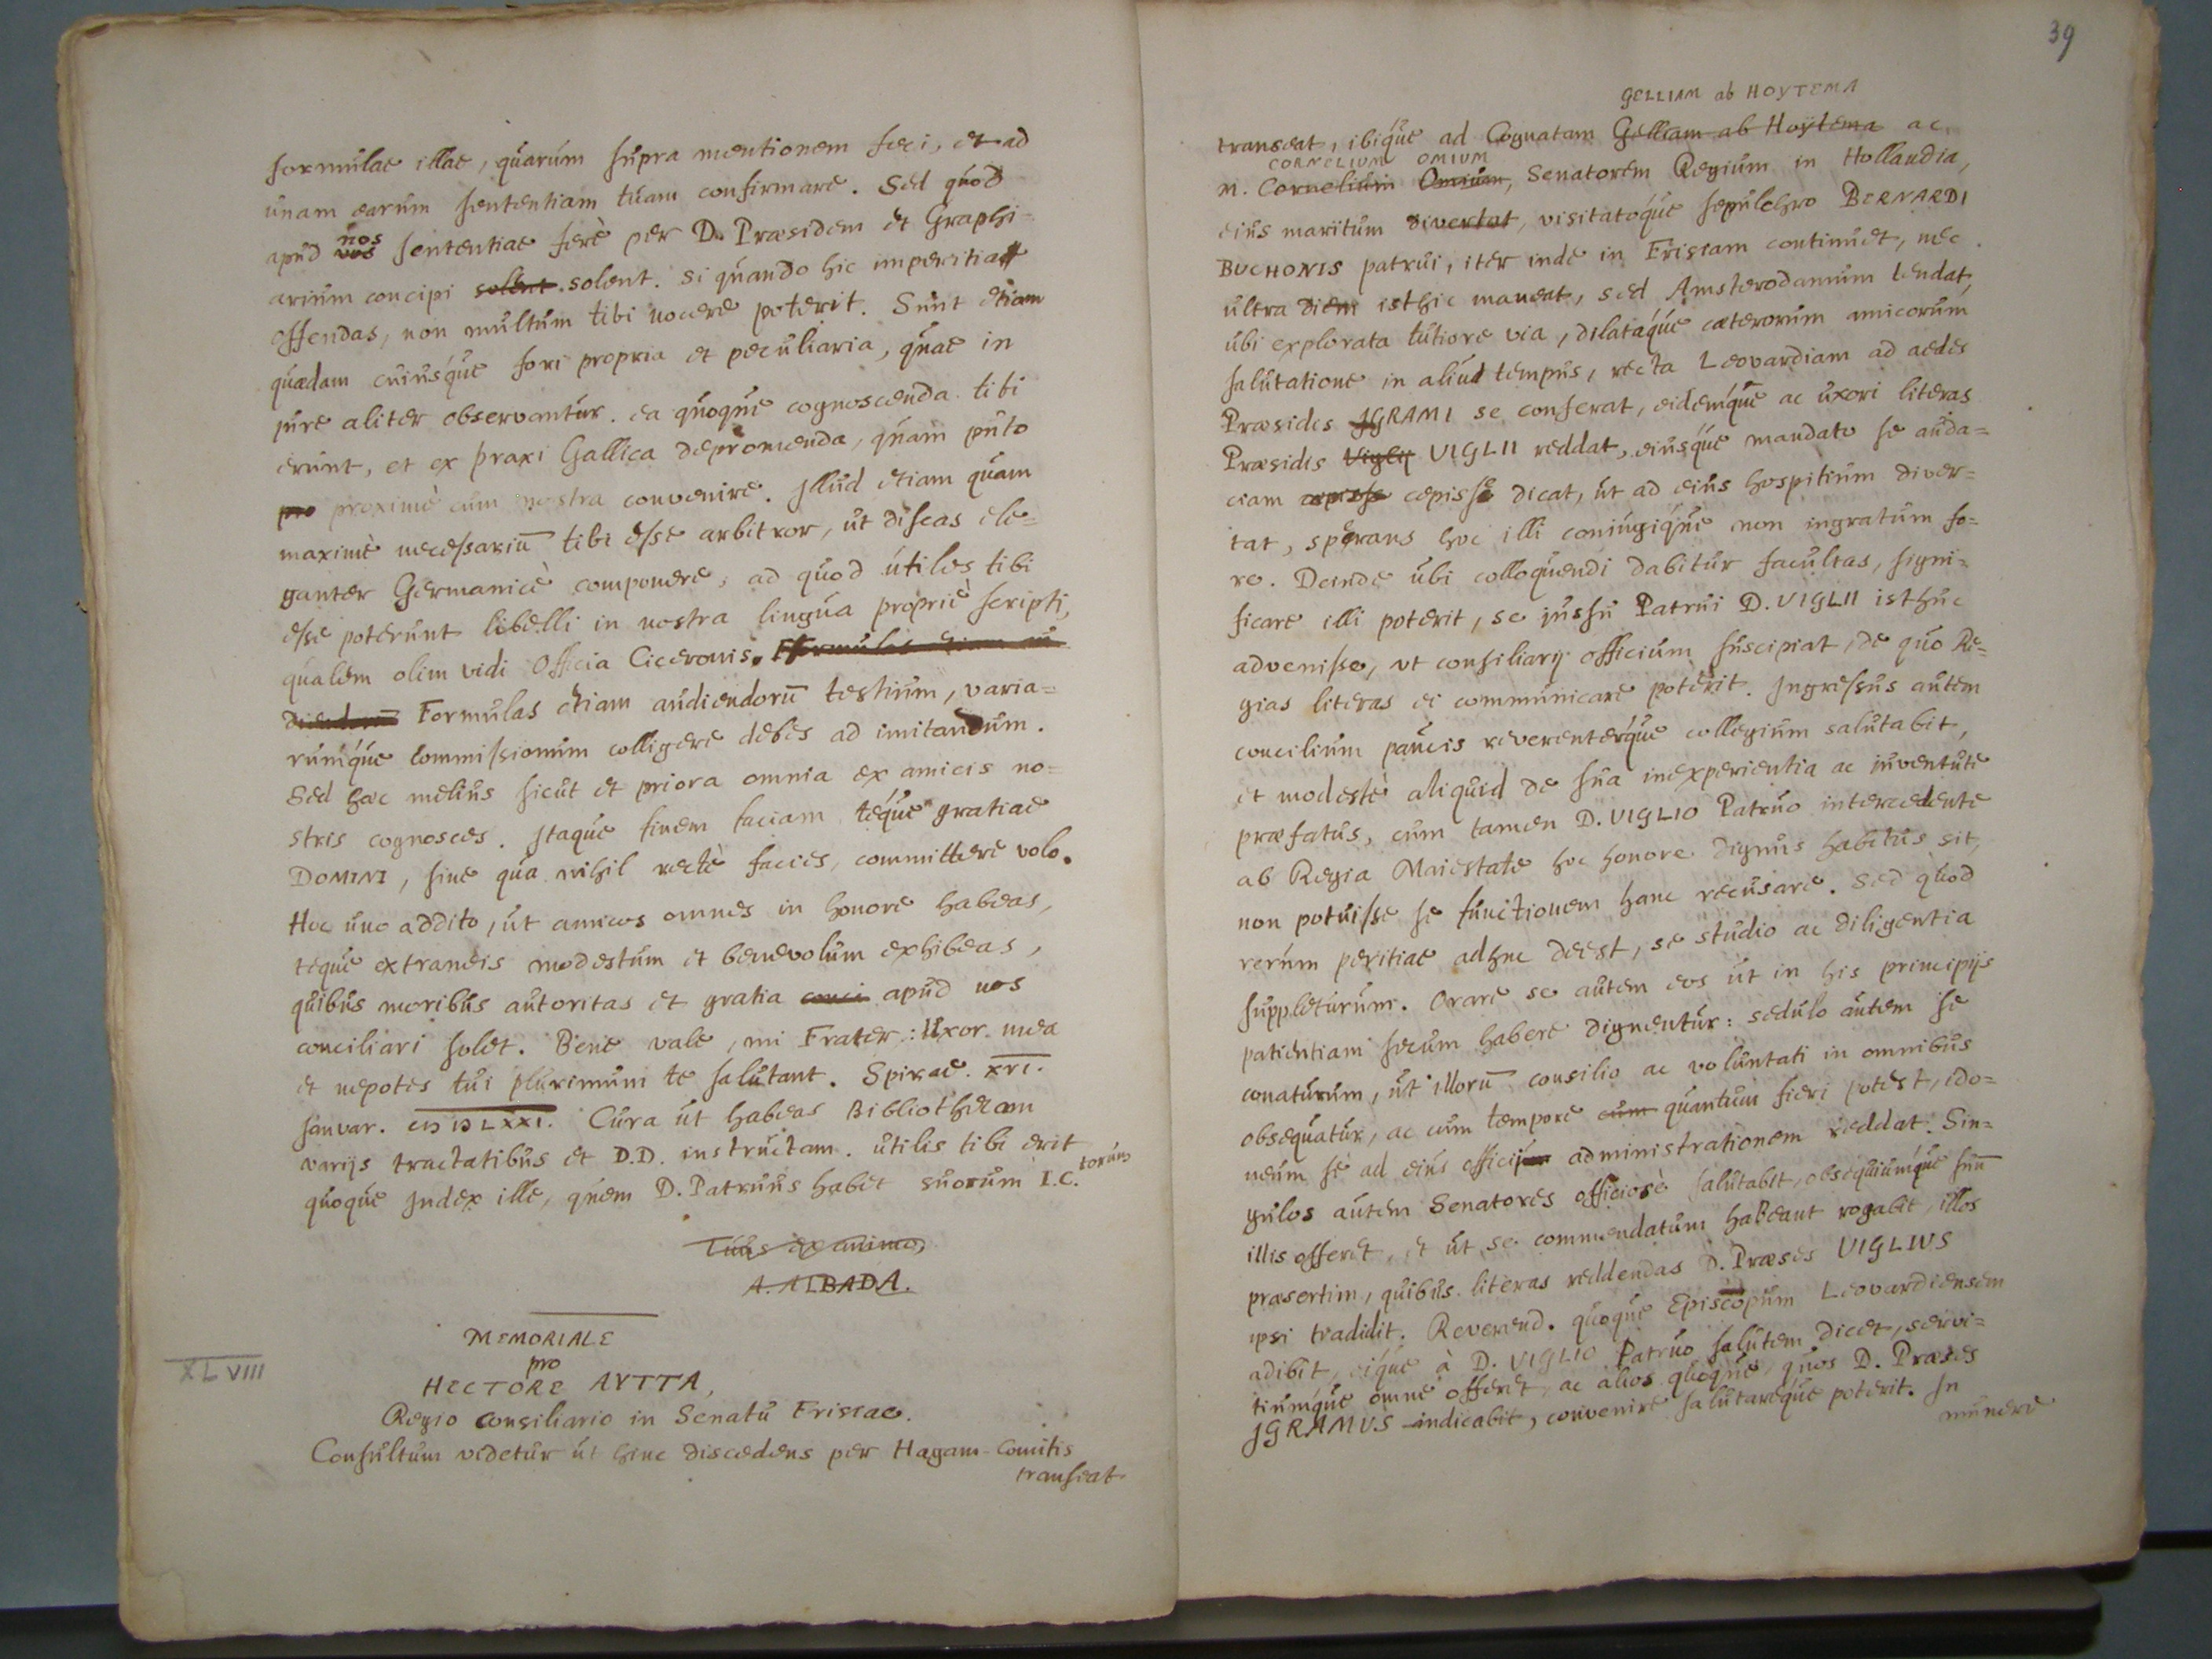 formulae illae, quarum supra mentionem feci, et ad
unam earum sententiam tuam confirmare. Sed quod
nos
apud vos sententiae ferè per D. Praesidem et Graphi=
arium concipi solent solent. Si quando hic imperitia
offendas, non multum tibi nocere poterit. Sunt etiam
quaedam cuiusque fori propria et peculiaria, quae in
jure aliter observantur. ea quoque cognoscenda tibi
erunt, et ex praxi Gallica depromenda, quam puto
pro proximè cum nostra convenire. Jllud etiam quam
maximè necessariū tibi esse arbitror, ut discas ele=
ganter Germanicè componere, ad quod utiles tibi
esse poterunt libelli in nostra lingua propriè scripti,
qualem olim vidi Officia Ciceronis. Formulas etiam au
diendorū Formulas etiam audiendorū testium, varia=
rumque commissionum colligere debes ad imitandum.
Sed haec melius sicut et priora omnia ex amicis no=
stris cognosces. Jtaque finem faciam teque gratiae
DOMINI, sine qua nihil rectè facies, committere volo.
Hoc uno addito, ut amicos omnes in honore habeas,
teque extraneis modestum et benevolum exhibeas,
quibus moribus autoritas et gratia conci apud nos
conciliari solet. Bene vale, mi Frater: Uxor mea
et nepotes tui plurimum te salutant. Spirae. XVI.
Januar. CIƆ IƆ LXXI. Cura ut habeas Bibliothecam
varijs tractatibus et D.D. instructam. utilis tibi erit
quoque Jndex ille, quem D. Patruus habet suorum I.C.torum
Tuus ex animo
A. ALBADA.
MEMORIALE
pro
XLVIII
HECTORE AYTTA,
Regio Consiliario in Senatu Frisiae.
Consultum videtur ut hinc discedens per Hagam-Comitis
transeat
39
GELLIAM ab HOYTEMA
transeat, ibique ad Cognatam Gelliam ab Hoytema ac
CORNELIUM OMIUM
M. Cornelium Omium, Senatorem Regium in Hollandia,
eius maritum divertat, visitatoque sepulchro BERNARDI
BUCHONIS patrui, iter inde in Frisiam continuet, nec
ultra diem isthic maneat, sed Amsterodamum tendat,
ubi explorata tutiore via, dilataque caeterorum amicorum
salutatione in aliud tempus, recta Leovardiam ad aedes
Praesidis JGRAMI se conferat, eidemque ac uxori literas
Praesidis Viglij VIGLII reddat, eiusque mandato se auda=
ciam cepisse cepisse dicat, ut ad eius hospitium diver=
tat, sperans hoc illi coniugique non ingratum fo=
re. Deinde ubi colloquendi dabitur facultas, signi=
ficare illi poterit, se jussu Patrui D. VIGLII isthuc
advenisse, ut consiliarij officium suscipiat, de quo Re=
gias literas ei communicare poterit. Jngressus autem
concilium paucis reverenterque collegium salutabit,
et modestè aliquid de sua inexperientia ac juventute
praefatus, cum tamen D. VIGLIO Patruo intercedente
ab Regia Maiestate hoc honore dignus habitus sit,
non potuisse se functionem hanc recusare. Sed quod
rerum peritiae adhuc deest, se studio ac diligentia
suppleturum. Orare se autem eos ut in his principijs
patientiam secum habere dignentur: sedulo autem se
conaturum, ut illorū consilio ac voluntati in omnibus
obsequatur, ac cum tempore cum quantum fieri potest, ido=
neum se ad eius officij administrationem reddat. Sin=
gulos autem Senatores officiosè salutabit, obsequiumque suū
illis offeret, et ut se commendatum habeant rogabit, illos
praesertim, quibus literas reddendas D. Praeses VIGLIUS
ipsi tradidit. Reverend. quoque Episcopum Leovardiensem
adibit, eique à D. VIGLIO Patruo salutem dicet, servi=
tiumque omne offeret, ac alios quoque, quos D. Praeses
JGRAMUS indicabit, convenire salutareque poterit. Jn
munere